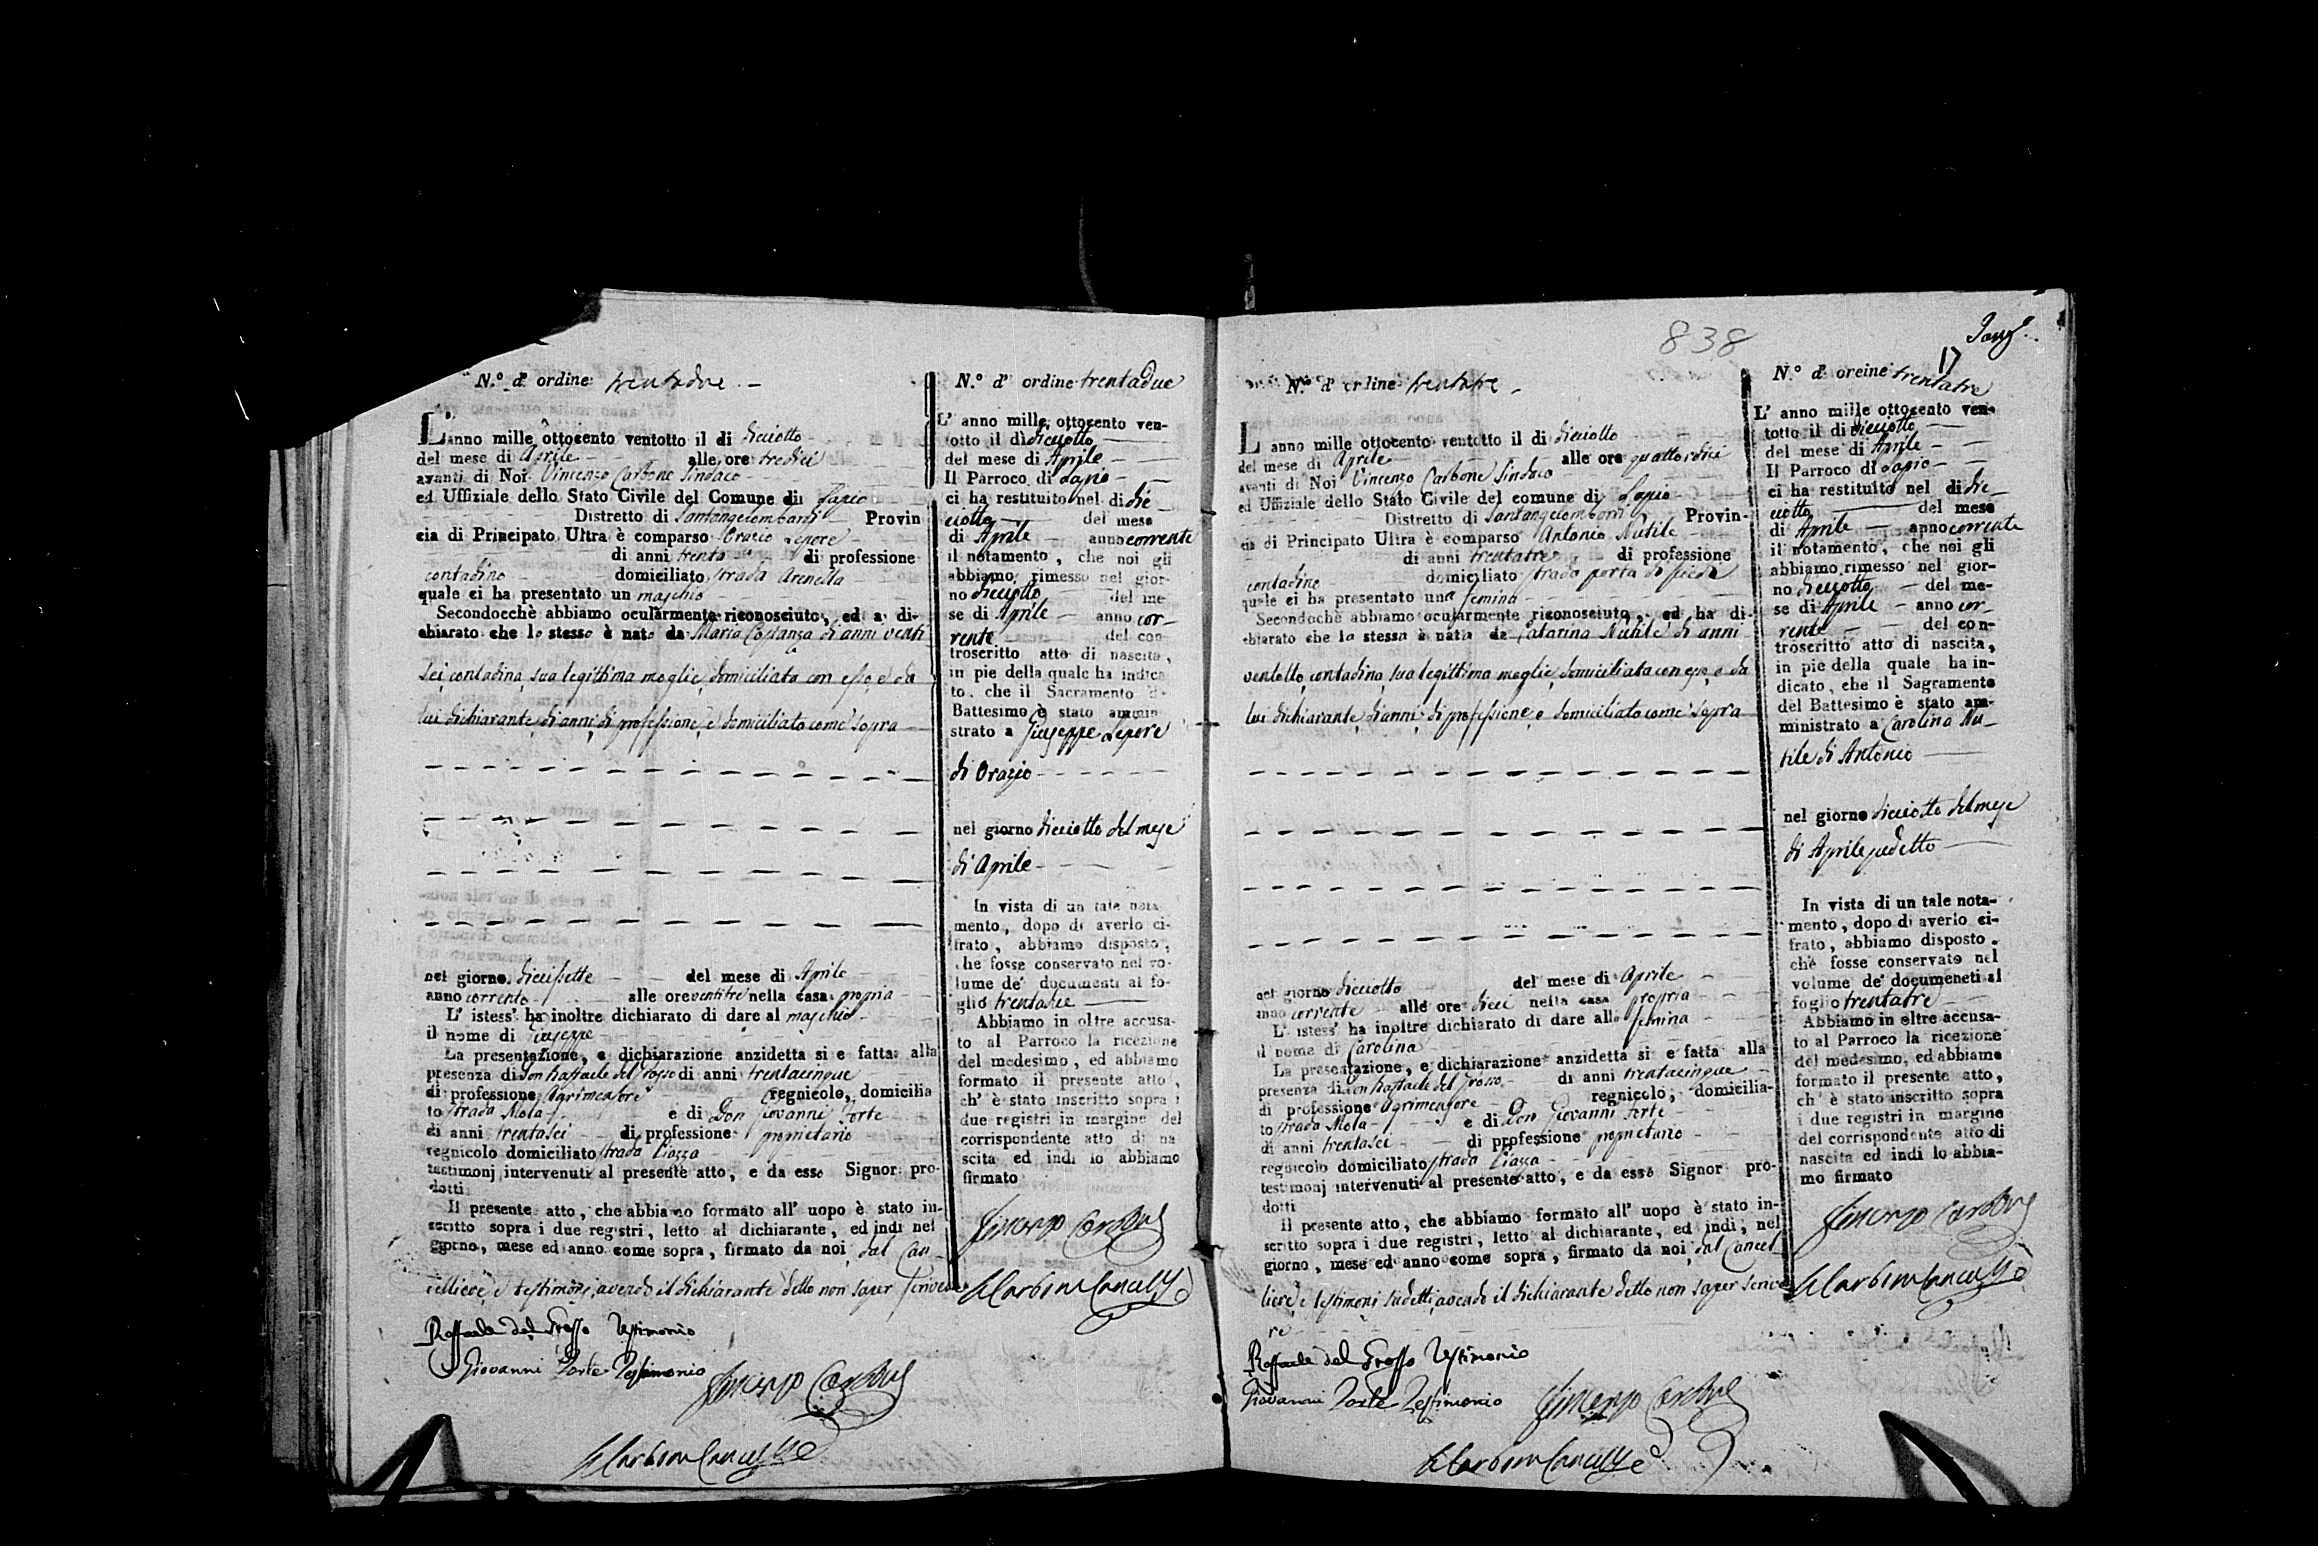 N.º d' ordine trentadue
L'anno mille ottocento ventotto il di dicciotto
del mese di Aprile alle ore tredici
avanti di Noi Vincenzo Carbone Sindaco
ed Uffiziale dello Stato Civile del Comune di Lapio
Distretto di Santangelombardi Provin
cia di Principato Ultra è comparso Orazio Lepore
di anni trenta di professione
contadino domiciliato strada Arenella
quale ci ha presentato un maschio
Secondocchè abbiamo ocularmente riconosciuto, ed a di-
chiarato che lo stesso è nato da Maria Costanza di anni venti
sei contadina, sua legittima moglie, domiciliata con esso, e da
lui dichiarante, di anni, di professione, e domiciliato come sopra
nel giorno diecisette del mese di Aprile
anno corrente alle ore ventitre nella casa propria
L' istess' ha inoltre dichiarato di dare al maschio
il nome di Giuseppe
La presentazione, e dichiarazione anzidetta si e fatta alla
presenza di Don Raffaele del Grosso di anni trentacinque
di professione Agrimensore regnicolo, domicilia
to strada Mola e di Don Giovanni Forte
di anni trentasei di professione proprietario
regnicolo domiciliato strada Piazza
testimonj intervenuti al presente atto, e da esso Signor pro-
dotti
Il presente atto, che abbiamo formato all' uopo è stato in-
scritto sopra i due registri, letto al dichiarante, ed indi nel
giorno, mese ed anno come sopra, firmato da noi, dal Can-
celliere, e testimoni, avendo il dichiarante detto non saper scrivere
Raffaele del Grosso Testimonio
Giovanni Forte Testimonio
Vincenzo Carbone
N.º d' ordine trentadue
L' anno mille ottocento ven-
totto il di dicciotto
del mese di Aprile
Il Parroco di Lapio
ci ha restituito nel di die
ciotto del mese
di Aprile anno corrente
il notamento, che noi gli
abbiamo rimesso nel gior-
no dicciotto del me-
se di Aprile anno cor-
rente del con
troscritto atto di nascita,
in pie della quale ha indica
to, che il Sacramento di
Battesimo è stato ammin
strato a Giuseppe Lepore
di Orazio
nel giorno dicciotto del mese
di Aprile
In vista di un tale nota
mento, dopo di averlo ci-
frato, abbiamo disposto,
che fosse conservato nel vo-
lume de' documenti al fo-
glio trentadue
Abbiamo in oltre accusa-
to al Parroco la ricezione
del medesimo, ed abbiamo
formato il presente atto,
ch' è stato inscritto sopra i
due registri in margine del
corrispondente atto di na
scita ed indi lo abbiamo
firmato
Vincenzo Carbone
838
17
N.º d' ordine trentatre
L' anno mille ottocento ventotto il di dicciotto
del mese di Aprile alle ore quattordici
avanti di Noi Vincenzo Carbone Sindaco
ed Uffiziale dello Stato Civile del comune di Lapio
Distretto di Santangelombardi Provin-
cia di Principato Ultra è comparso Antonio Nutile
di anni trentatre di professione
contadino domiciliato strada porta di piedi
quale ci ha presentato una femina
Secondochè abbiamo ocularmente riconosciuto, ed ha di-
chiarato che la stessa è nata da Catarina Nutile di anni
ventotto, contadina, sua legittima moglie, domiciliata con esso, e da
lui dichiarante, di anni, di professione, e domiciliato come sopra
nel giorno dicciotto del mese di Aprile
anno corrente alle ore dieci nella casa propria
L' istess' ha inoltre dichiarato di dare alla femina
il nome di Carolina
La presentazione, e dichiarazione anzidetta si e fatta alla
presenza di Don Raffaele del Grosso di anni trentacinque
di professione Agrimensore regnicolo, domicilia-
to strada Mola e di Don Giovanni Forte
di anni trentasei di professione proprietario
regnicolo domiciliato strada Piazza
testimonj intervenuti al presente atto, e da esso Signor pro-
dotti
Il presente atto, che abbiamo formato all' uopo è stato in-
scritto sopra i due registri, letto al dichiarante, ed indi, nel
giorno, mese ed anno come sopra, firmato da noi, dal Cancel
liere, e testimoni sudetti, avendo il dichiarante detto non saper scrive
re
Raffaele del Grosso Testimonio
Giovanni Forte Testimonio
Vincenzo Carbone
N.º d' oreine trentatre
L' anno mille ottocento ven-
totto il di dicciotto
del mese di Aprile
Il Parroco di Lapio
ci ha restituito nel di die
ciotto del mese
di Aprile anno corrente
il notamento, che noi gli
abbiamo rimesso nel gior-
no dicciotto del me-
se di Aprile anno cor-
rente del con-
troscritto atto di nascita,
in pie della quale ha in-
dicato, che il Sagramento
del Battesimo è stato am-
ministrato a Carolina Nu-
tile di Antonio
nel giorno dicciotto del mese
di Aprile sudetto
In vista di un tale nota-
mento, dopo di averlo ci-
frato, abbiamo disposto,
chè fosse conservato nel
volume de' documeneti al
foglio trentatre
Abbiamo in oltre accusa-
to al Parroco la ricezione
del medesimo, ed abbiamo
formato il presente atto,
ch' è stato inscritto sopra
i due registri in margine
del corrispondente atto di
nascita ed indi lo abbia-
mo firmato
Vincenzo Carbone